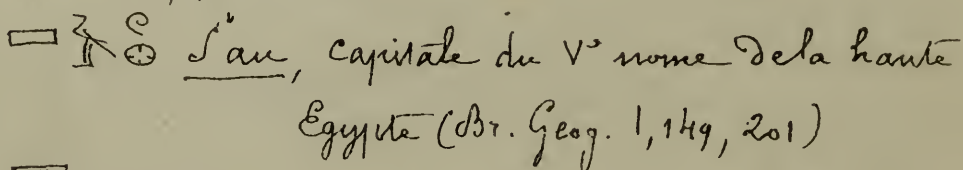 S'au, capitale du Vᵉ nome de la haute
Egypte (Br. Geog. 1, 149, 201)